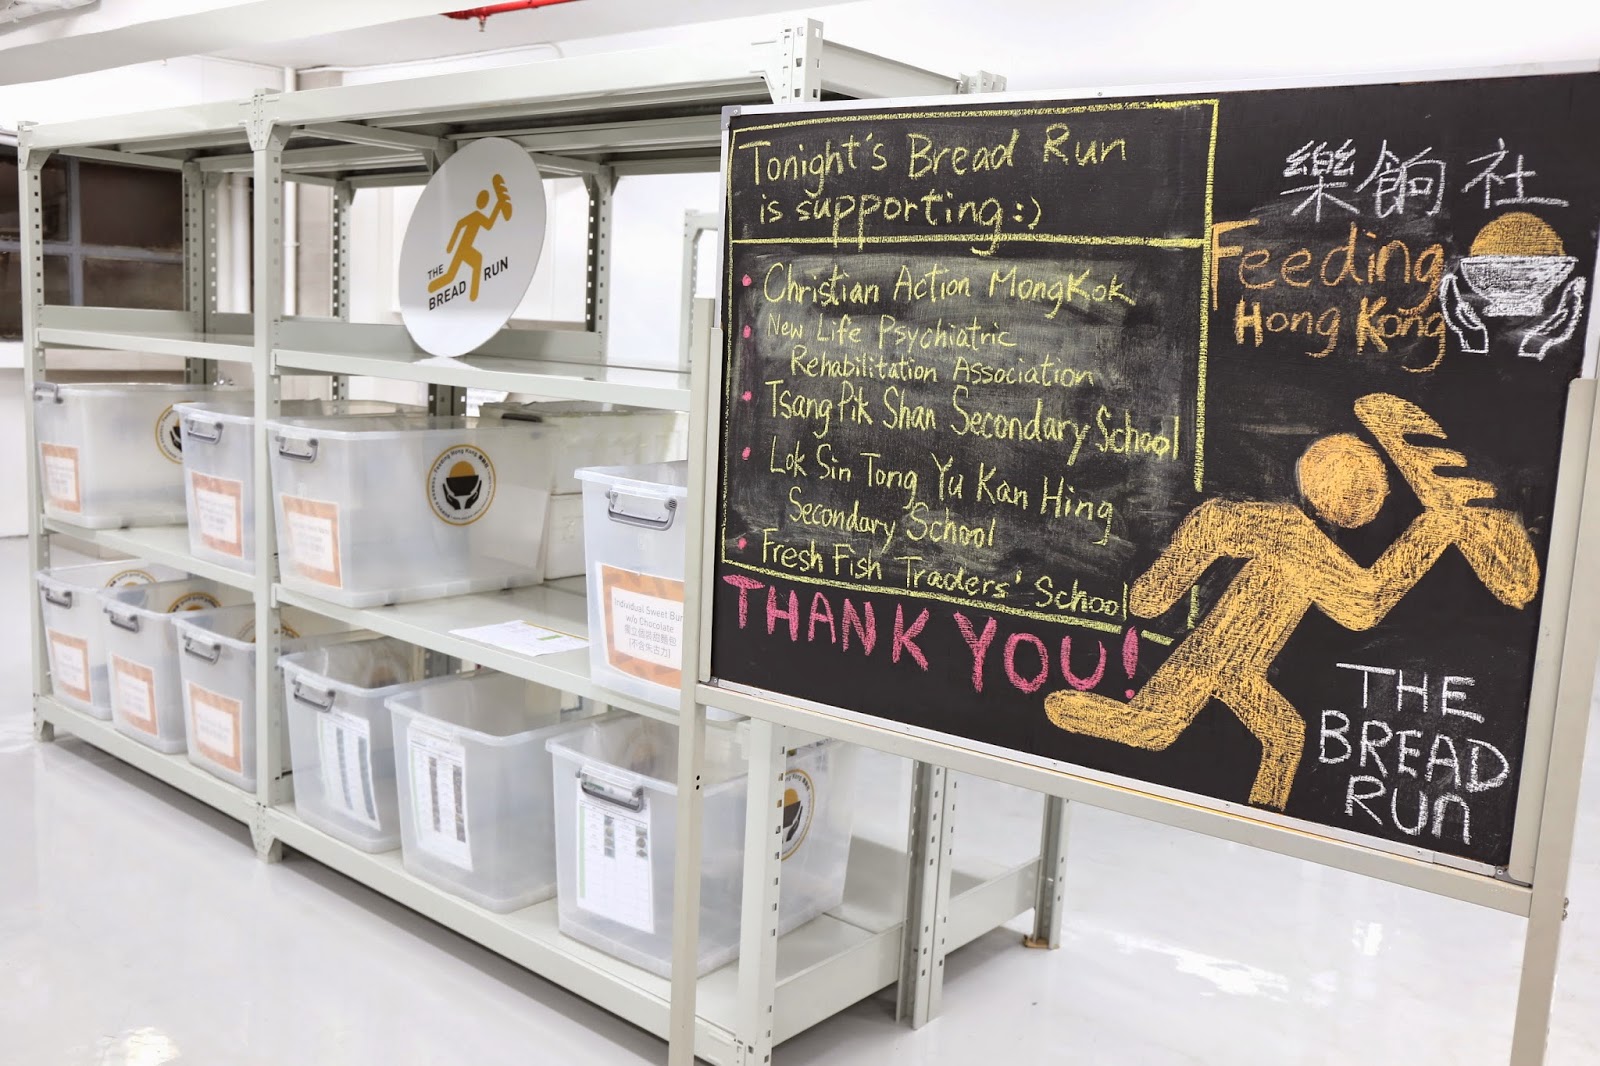 THE
BREAD RUN
Individual Sweet Bun
w/o Chocolate
獨立包裝甜麵包
(不含朱古力)
Feeding Hong Kong
Tonight's Bread Run
is supporting :)
• Christian Action MongKok
• New Life Psychiatric
Rehabilitation Association
• Tsang Pik Shan Secondary School
• Lok Sin Tong Yu Kan Hing
Secondary School
• Fresh Fish Traders' School
THANK YOU!
樂餉社
Feeding
Hong Kong
THE
BREAD
RUN